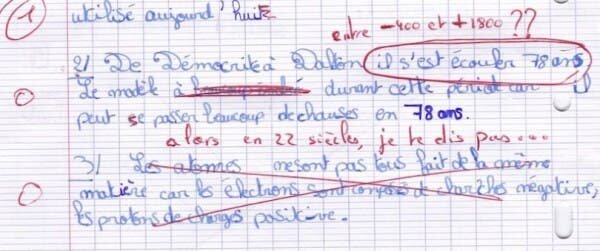 1 utilisé aujourd'hui
entre -400 et +1800 ??
2) De Démocrite à Dalton il s'est écouler 78 ans
Le modèle à durant cette périod car il
peut se passer beaucoup de chauses en 78 ans.
alors en 22 siècles, je te dis pas...
3) Les atomnes ne sont pas tous fait de la même
matière car les electrons sont composés de charges négative,
les protons de charges positive.
0
0